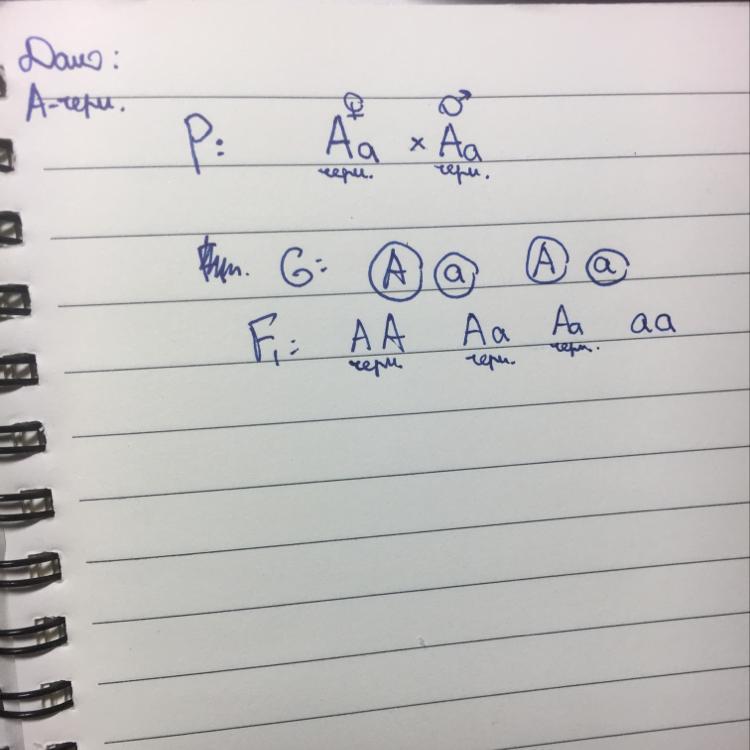 Дано:
А-черн.
♀ ♂
P: Aa × Aa
черн. черн.
G: A a A a
F₁: AA Aa Aa aa
черн. черн. черн.